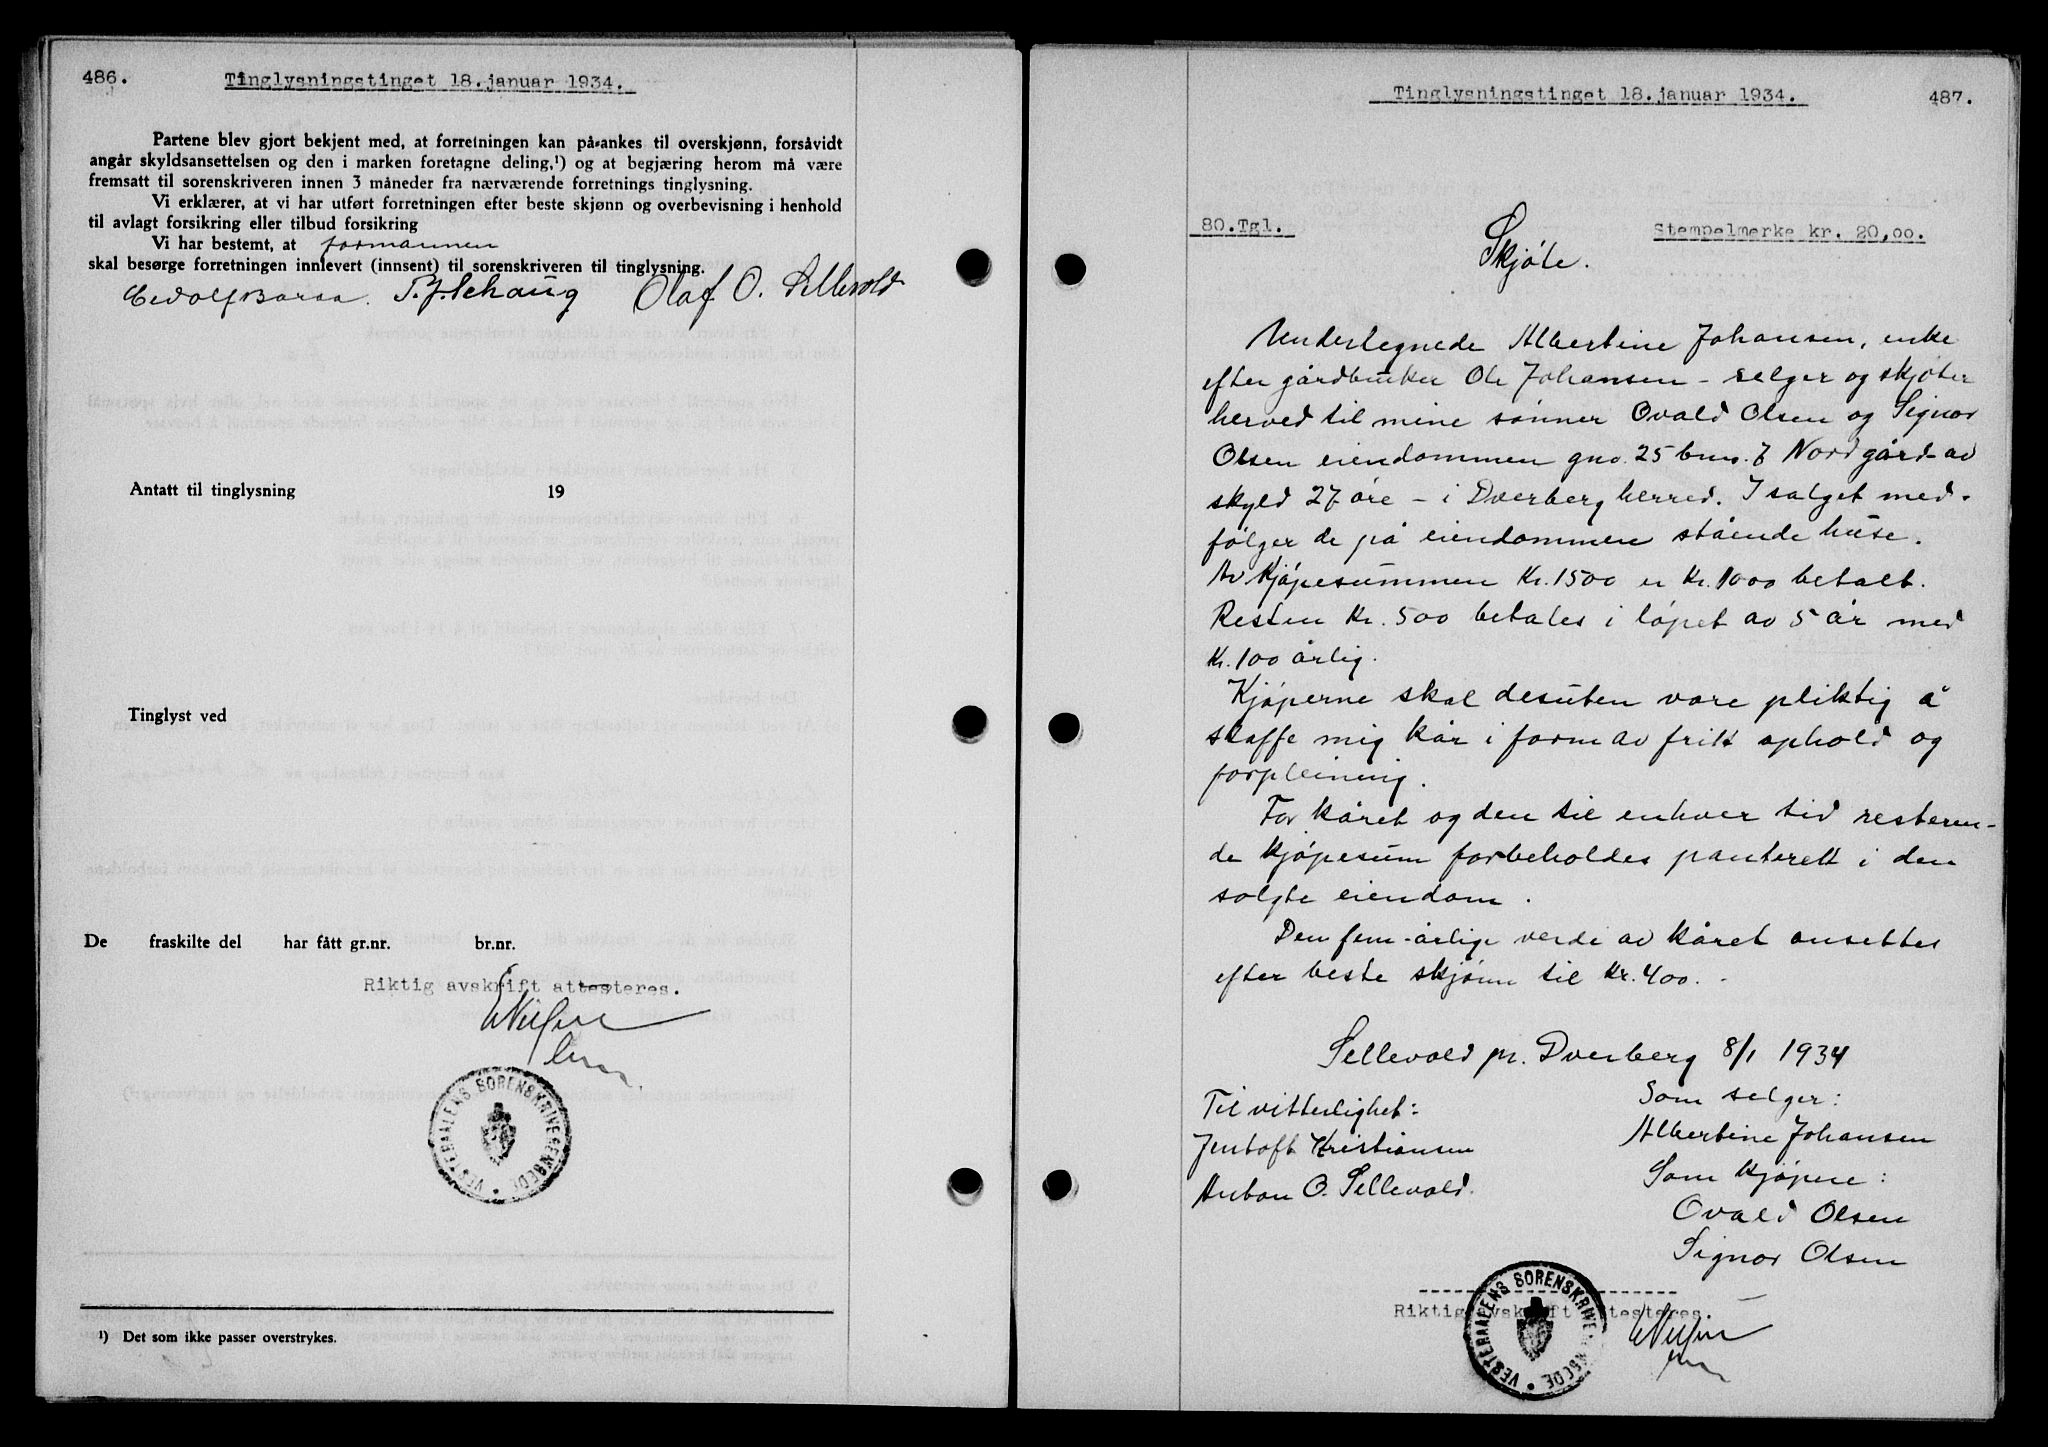 486.
Tinglysningstinget 18.januar 1934.
Partene blev gjort bekjent med, at forretningen kan på-ankes til overskjønn, forsåvidt
angår skyldsansettelsen og den i marken foretagne deling,¹) og at begjæring herom må være
fremsatt til sorenskriveren innen 3 måneder fra nærværende forretnings tinglysning.
Vi erklærer, at vi har utført forretningen efter beste skjønn og overbevisning i henhold
til avlagt forsikring eller tilbud forsikring
Vi har bestemt, at formannen
skal besørge forretningen innlevert (innsent) til sorenskriveren til tinglysning.
Olaf O. Sellevold
Antatt til tinglysning 19
Tinglyst ved
De fraskilte del har fått gr.nr. br.nr.
Riktig avskrift attesteres.
VESTERAALENS SORENSKRIVEREMBEDE
¹) Det som ikke passer overstrykes.
Tinglysningstinget 18.januar 1934.
487.
80.Tgl.
Stempelmerke kr. 20,00.
Skjøte.
Undertegnede Albertine Johansen, enke
efter gårdbruker Ole Johansen - selger og skjøter
herved til mine sønner Ovald Olsen og Signor
Olsen eiendommen gno. 25 bno. 7 Nordgård av
skyld 27 øre - i Dverberg herred. I salget med-
følger de på eiendommen stående huse.
Av kjøpesummen Kr. 1500 er Kr. 1000 betalt.
Resten Kr. 500 betales i løpet av 5 år med
Kr. 100 årlig.
Kjøperne skal desuten være pliktig å
skaffe mig kår i form av fritt ophold og
forpleining.
For kåret og den til enhver tid resteren-
de kjøpesum forbeholdes panterett i den
solgte eiendom.
Den fem-årlige verdi av kåret ansettes
efter beste skjønn til Kr. 400.-
Sellevold pr. Dverberg 8/1 1934
Som selger:
Til vitterlighet:
Albertine Johansen
Jentoft Kristiansen
Som kjøpere:
Anton O. Sellevold.
Ovald Olsen
Signor Olsen
Riktig avskrift attesteres.
VESTERAALENS SORENSKRIVEREMBEDE